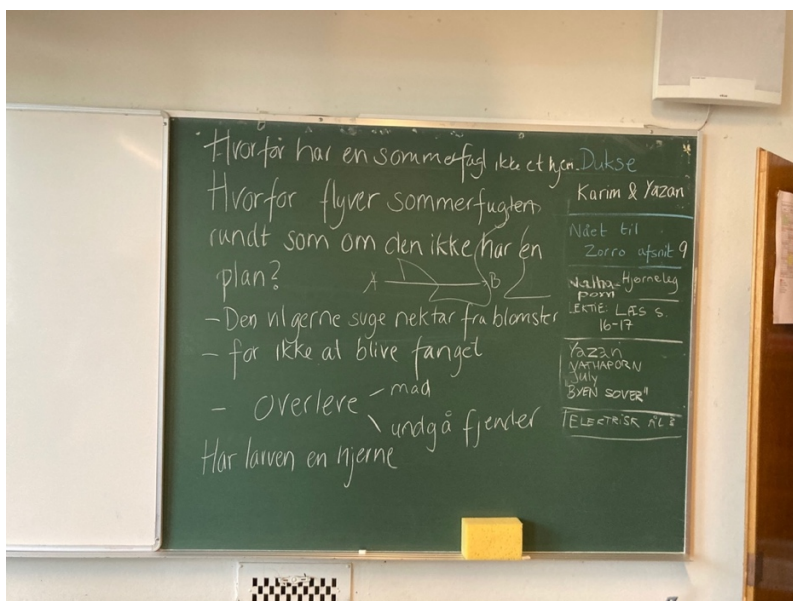 Hvorfor har en sommerfugl ikke et hjem.
Hvorfor flyver sommerfuglen
rundt som om den ikke har en
plan?
A B
- Den vil gerne suge nektar fra blomster
- for ikke at blive fanget
- overleve - mad
\ undgå fjender
Har larven en hjerne
Dukse
Karim & Yazan
Nået til
Zorro afsnit 9
Hjørneleg
LEKTIE: LÆS s.
16-17
Yazan
NATHAPORN
July
BYEN SOVER"
ELEKTRISK